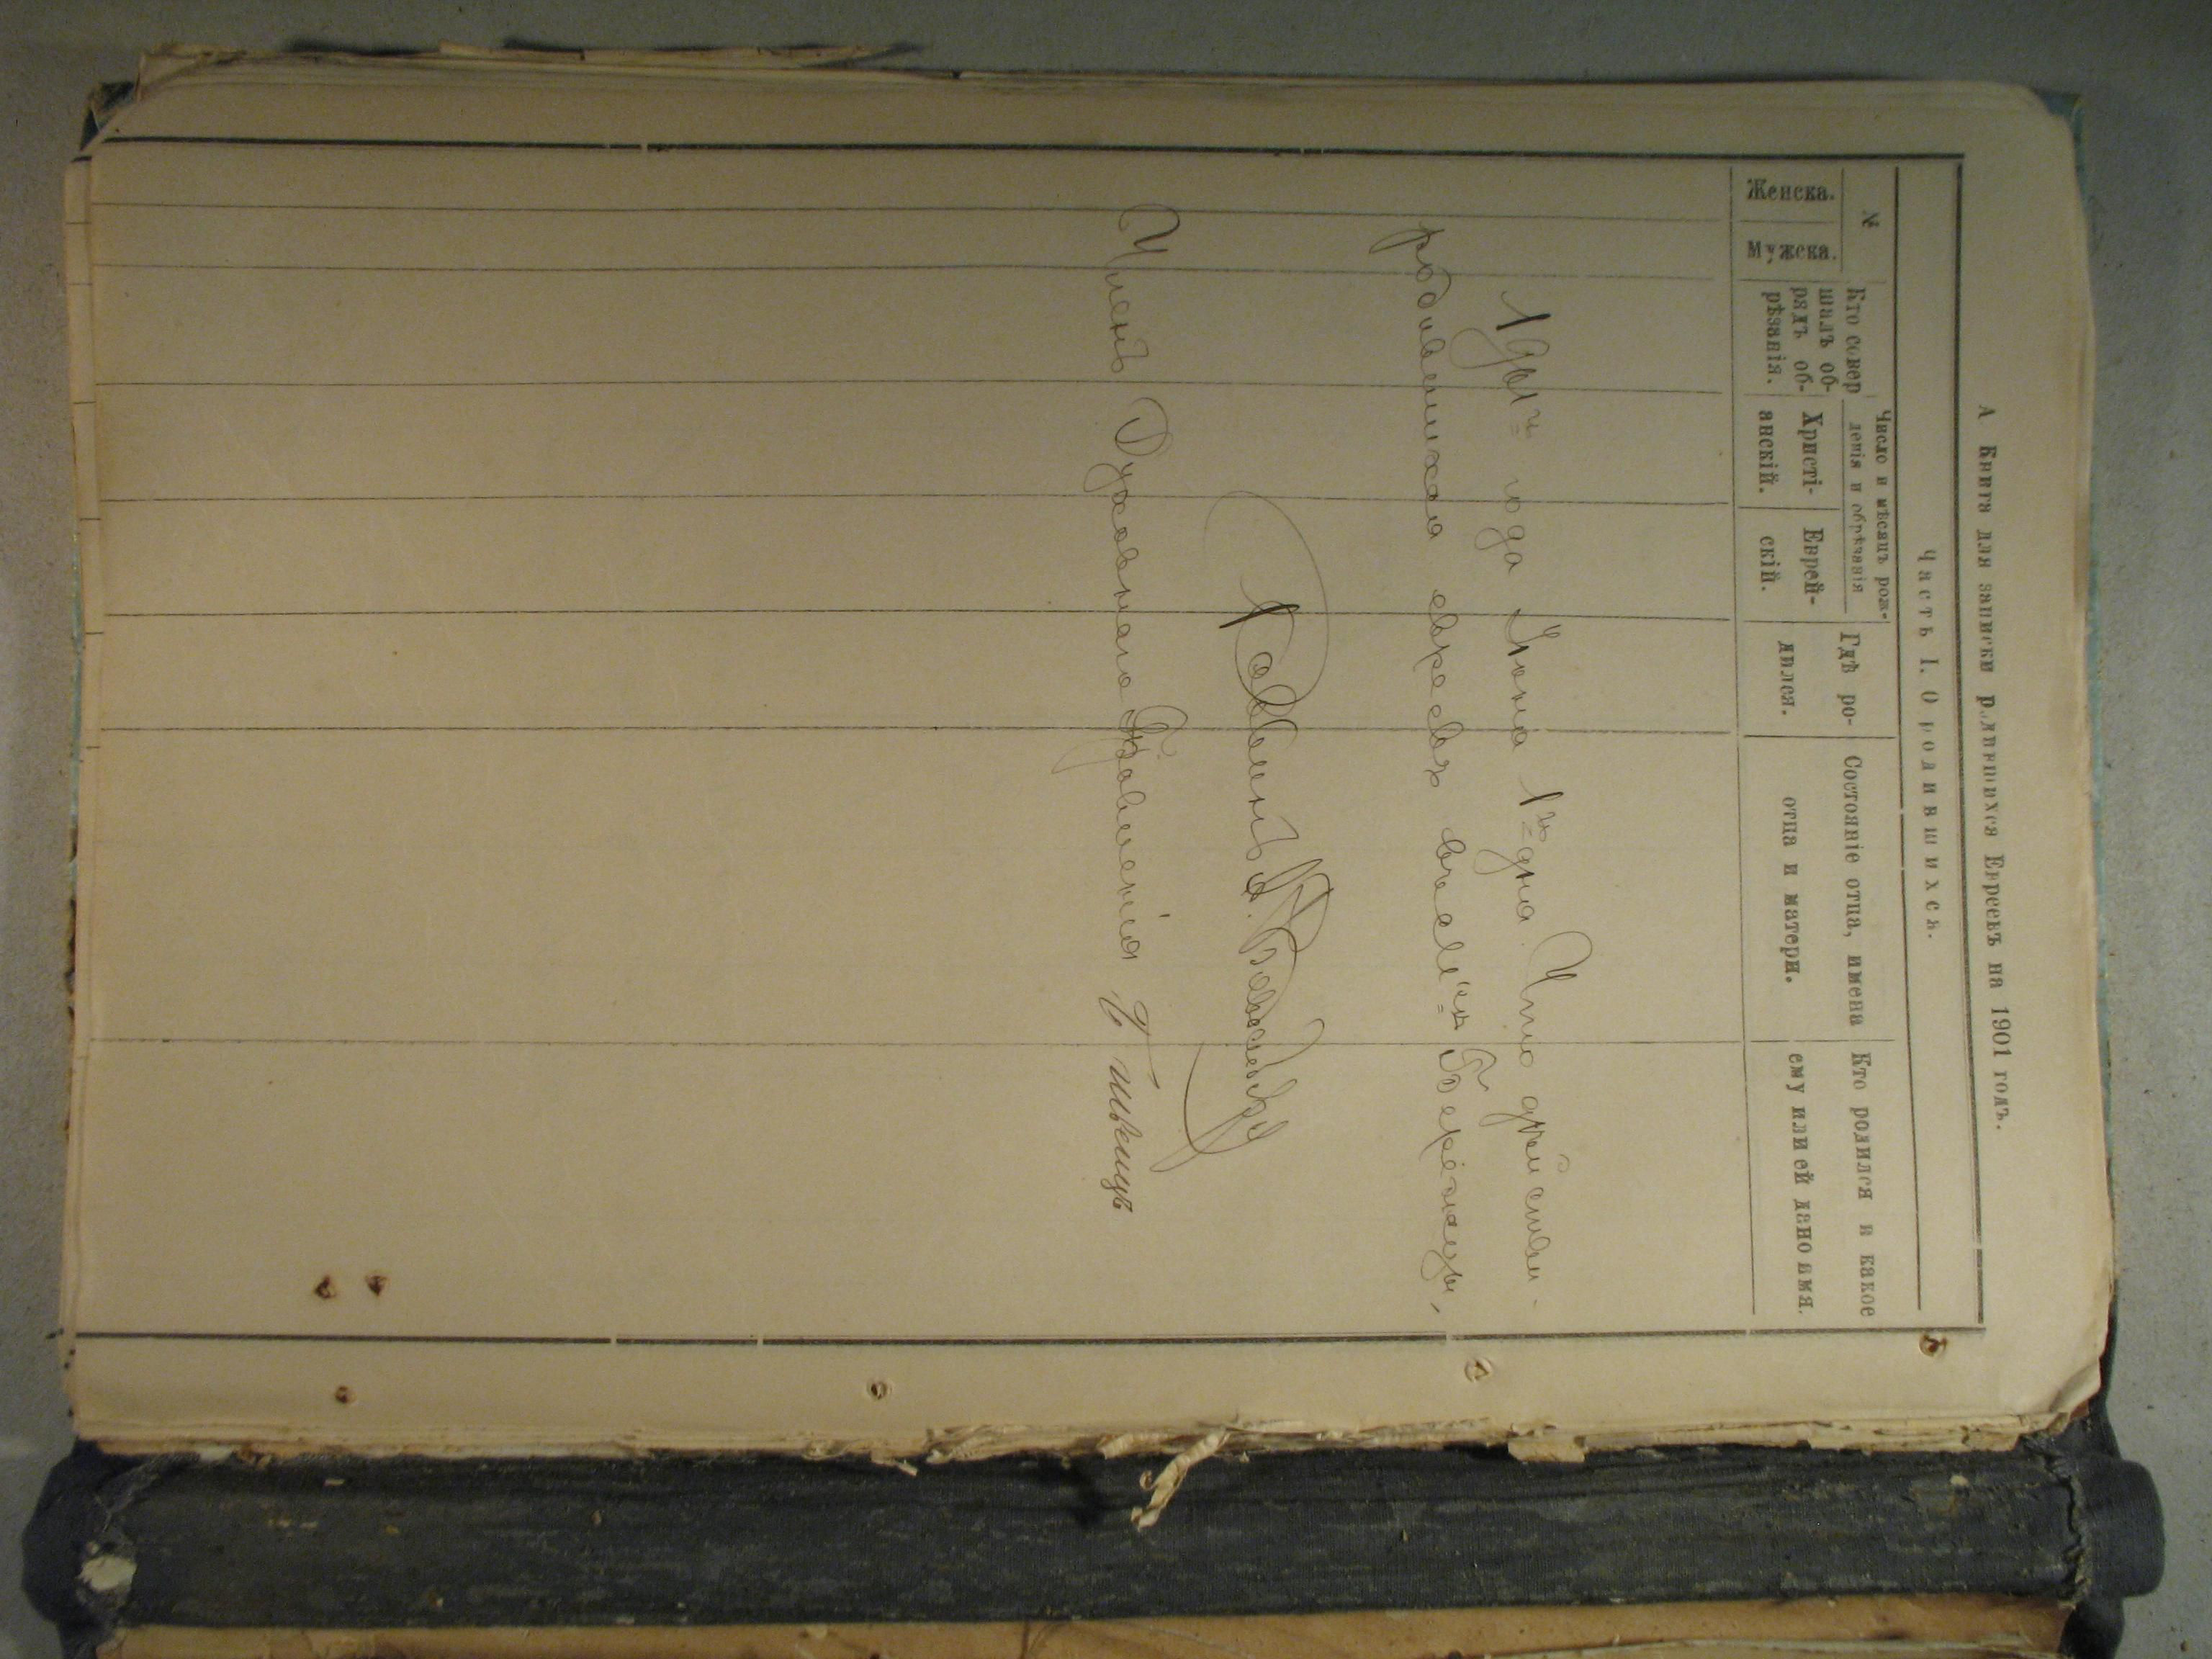 А Книга для записки родившихся Евреевъ на 1901 годъ.
Часть I. О родившихсъ.
№
Женска.
Мужска.
Кто совер
шалъ об-
рядъ об-
рѣзанія.
Число и мѣсяцъ рож-
денія и обрѣзанія
Христі-
анскій.
Еврей-
скій.
Гдѣ ро-
дился.
Состояніе отца, имена
отца и матери.
Кто родился и какое
ему или ей дано имя.
года Іюня 1го дня. Что
родившихся евреевъ
Раввинъ
Членъ Духовнаго Правленія